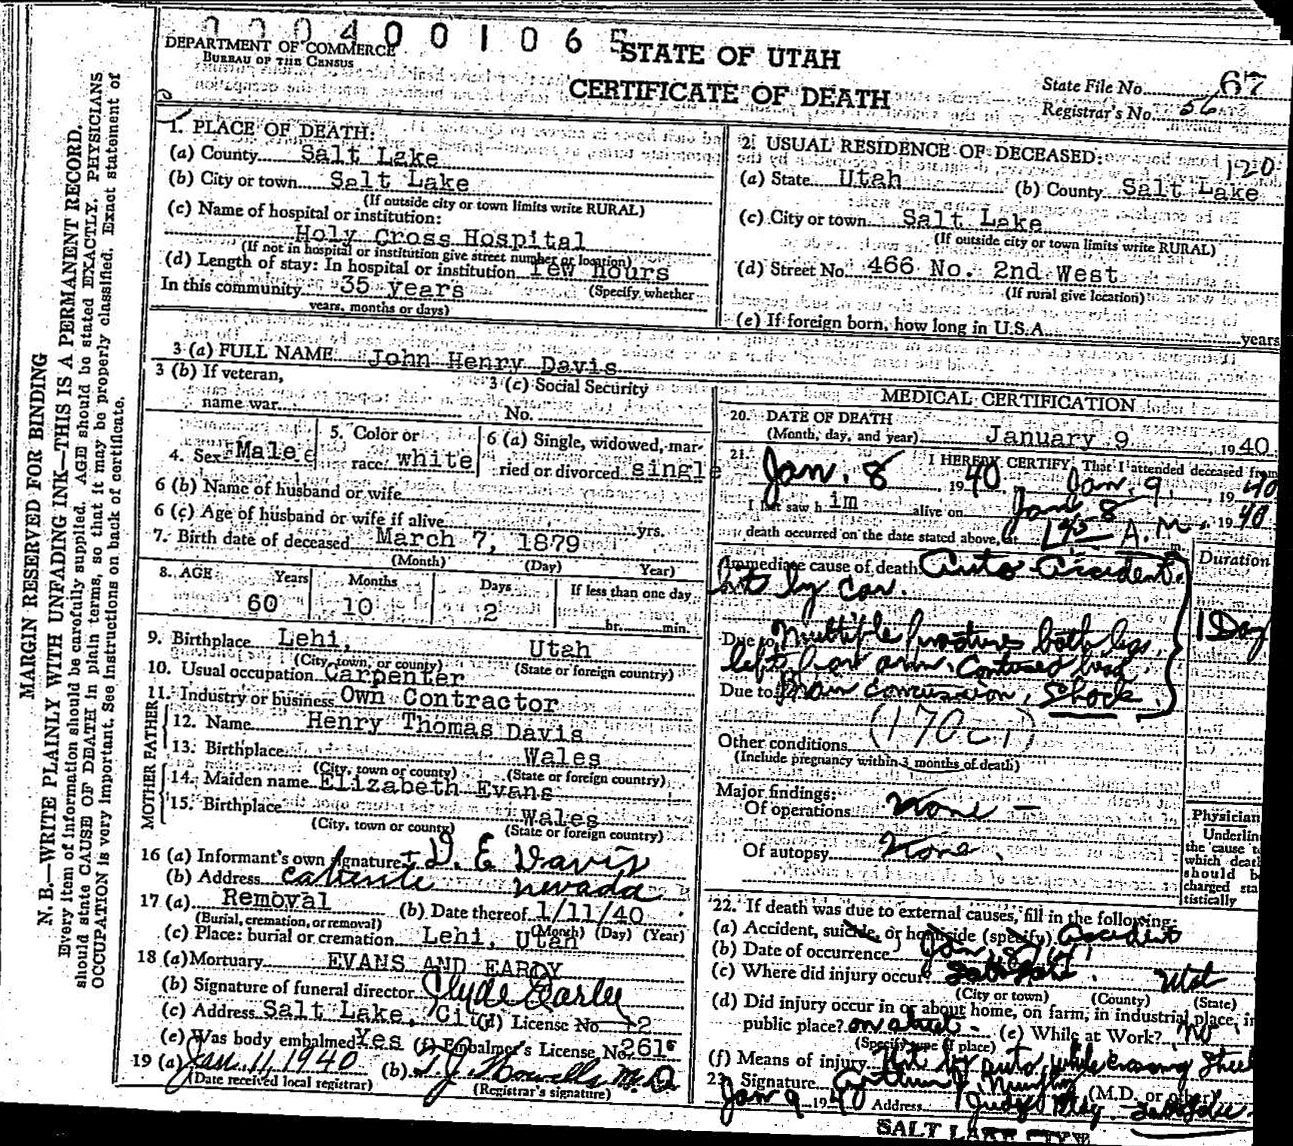 0004001065
DEPARTMENT OF COMMERCE
BUREAU OF THE CENSUS
STATE OF UTAH
CERTIFICATE OF DEATH
State File No. 67
Registrar's No. 56
MARGIN RESERVED FOR BINDING
N. B.—WRITE PLAINLY WITH UNFADING INK—THIS IS A PERMANENT RECORD.
Every item of information should be carefully supplied. AGE should be stated EXACTLY. PHYSICIANS
should state CAUSE OF DEATH in plain terms, so that it may be properly classified. Exact statement of
OCCUPATION is very important. See instructions on back of certificate.
1. PLACE OF DEATH:
(a) County Salt Lake
(b) City or town Salt Lake
(If outside city or town limits write RURAL)
(c) Name of hospital or institution:
Holy Cross Hospital
(If not in hospital or institution give street number or location)
(d) Length of stay: In hospital or institution few hours
In this community 35 years (Specify whether
years, months or days)
2. USUAL RESIDENCE OF DECEASED:
120
(a) State Utah (b) County Salt Lake
(c) City or town Salt Lake
(If outside city or town limits write RURAL)
(d) Street No. 466 No. 2nd West
(If rural give location)
(e) If foreign born, how long in U.S.A. years
3 (a) FULL NAME John Henry Davis
3 (b) If veteran,
name war
3 (c) Social Security
No.
4. Sex Male
5. Color or
race white
6 (a) Single, widowed, mar-
ried or divorced single
6 (b) Name of husband or wife
6 (c) Age of husband or wife if alive yrs.
7. Birth date of deceased March 7, 1879
(Month) (Day) Year)
8. AGE Years Months Days If less than one day
60 10 2 hr. min.
9. Birthplace Lehi, Utah
(City, town, or county) (State or foreign country)
10. Usual occupation Carpenter
11. Industry or business Own Contractor
FATHER
12. Name Henry Thomas Davis
13. Birthplace Wales
(City, town or county) (State or foreign country)
MOTHER
14. Maiden name Elizabeth Evans
15. Birthplace Wales
(City, town or county) (State or foreign country)
16 (a) Informant's own signature D. E Davis
(b) Address Caliente Nevada
17 (a) Removal (b) Date thereof 1/11/40
(Burial, cremation, or removal) (Month) (Day) (Year)
(c) Place: burial or cremation Lehi, Utah
18 (a) Mortuary EVANS AND EARLY
(b) Signature of funeral director Clyde Early
(c) Address Salt Lake, City (d) License No 12
(e) Was body embalmed Yes (f) Embalmer's License No. 261
19 (a) Jan. 11, 1940 (b)
(Date received local registrar) (Registrar's signature)
MEDICAL CERTIFICATION
20. DATE OF DEATH
(Month, day, and year) January 9 1940.
21. I HEREBY CERTIFY, That I attended deceased from
Jan. 8, 1940, Jan. 9, 1940
I last saw h im alive on Jan 8, 1940
death occurred on the date stated above, at 1 45 A.M. m.
Duration
Immediate cause of death Auto Accident.
hit by car.
Due to Multiple fractures both legs,
left arm. Contused
1 Day
Due to Brain concussion, Shock.
(170c-1)
Other conditions
(Include pregnancy within 3 months of death)
Major findings:
Of operations None -
Of autopsy None.
Physician
Underlin
the cause t
which deat
should b
charged sta
tistically
22. If death was due to external causes, fill in the following:
(a) Accident, suicide, or homicide (specify) Accident
(b) Date of occurrence Jan 8/40
(c) Where did injury occur? Salt Lake. Utah
(City or town) (County) (State)
(d) Did injury occur in or about home, on farm, in industrial place, in
public place? on street - (e) While at Work? No
(Specify type of place)
(f) Means of injury Hit by auto, while crossing Street
23. Signature (M.D. or other)
Jan 9 1940 Address Judge Bldg Salt Lake
SALT LAKE CITY